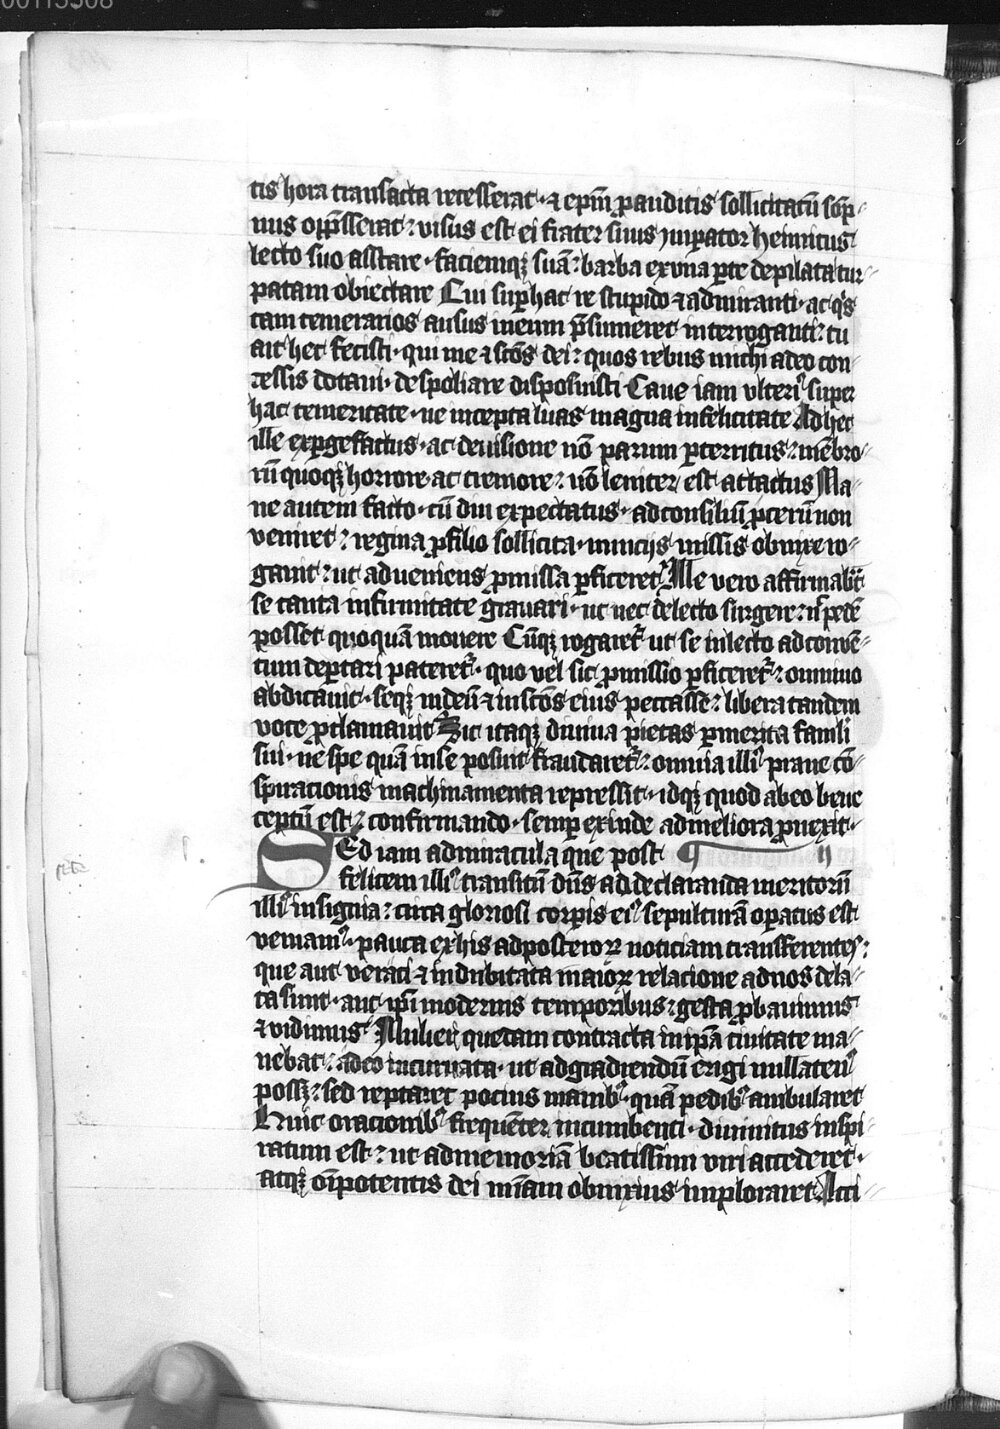 00115508
tis hora transacta recesserat · ⁊ ep̄m ꝑ auditis sollicitatū sop̄-
nus opp̄sserat : visus est ei frater suus imꝑator heinricus
lecto suo asstare · faciemqꝫ suā : barba ex vna ꝑte depilata tur-
patam obiectare Cui suꝑ hac re stupido ⁊ admiranti · ac qͥs
tam temerarios ausus in eum p̄sumeret interroganti : tu
ait hec fecisti · qui me ⁊ sc̄os dei : quos rebus michi a deo con-
cessis dotaui · despoliare disposuisti Caue iam vlteriꝰ super
hac temeritate · ne incepta luas magna infelicitate Ad hec
ille exꝑgefactus · ac de visione nō parum ꝑterritus : mēbro-
rū quoqꝫ horrore ac tremore : nō leniter est attactus Ma-
ne autem facto · cū diu expectatus · ad consiliū ꝓcerū non
veniret : regina ꝓ filio sollicita · nunciis missis obnixe ro-
gauit : ut adueniens ꝓmissa ꝑficeret Ille vero affirmabat
se tanta infirmitate grauari · ut nec de lecto surgere : n̄ pedē
posset quoquā mouere Cūqꝫ rogaretᷣ ut se in lecto ad conuē-
tum deportari pateretᷣ · quo vel sic ꝓmissio ꝑficeretᷣ : omnino
abdicauit · seqꝫ in deū ⁊ in sc̄os eius peccasse : libera tandem
voce ꝓclamauit Sic itaqꝫ diuina pietas ꝑ merita famuli
sui · ne spe quā in se posuit fraudaretᷣ : omnia illiꝰ praue cō-
spiracionis machinamenta repressit · idqꝫ quod ab eo bene
ceptū est : confirmando · semꝑ exinde ad meliora ꝓuexit ·
SEd iam ad miracula que post
felicem illiꝰ transitū dn̄s ad declaranda meritorū
illiꝰ insignia : circa gloriosi corꝑis eiꝰ sepulturā oꝑatus est
veniamꝰ · pauca ex his ad posteroꝝ noticiam transferentes :
que aut veraci ⁊ indubitata maioꝝ relacione ad nos dela-
ta sunt · aut ip̄i modernis temporibus : gesta ꝓbauimus
⁊ vidimus Mulier quedam contracta in ip̄a ciuitate ma-
nebat : adeo incuruata · ut ad gradiendū erigi nullatenꝰ
possꝫ : sed reptaret pocius manibꝰ · quā pedibꝰ ambularet
Huic oracionibꝰ frequēter incumbenti · diuinitus inspi-
ratum est : ut ad memoriā beatissimi viri accederet ·
atqꝫ om̄ipotentis dei mīam obnixius imploraret Acci-